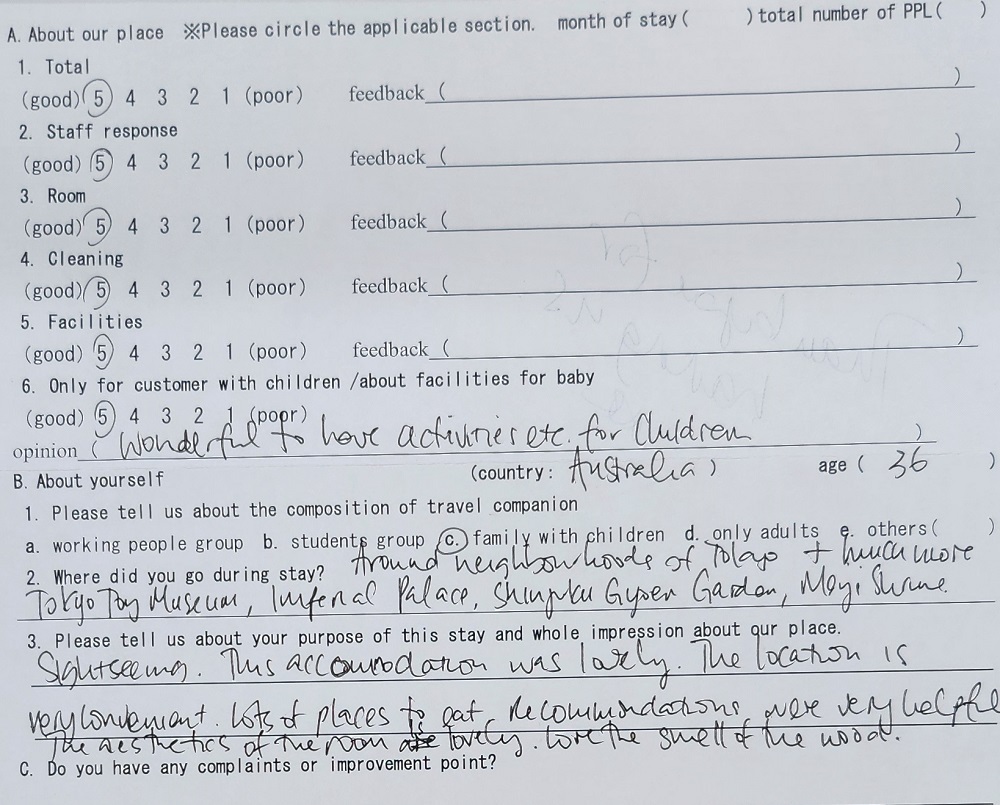 A. About our place ※Please circle the applicable section. month of stay ( ) total number of PPL( )
1. Total
(good) 5 4 3 2 1 (poor) feedback ( )
2. Staff response
(good) 5 4 3 2 1 (poor) feedback ( )
3. Room
(good) 5 4 3 2 1 (poor) feedback ( )
4. Cleaning
(good) 5 4 3 2 1 (poor) feedback ( )
5. Facilities
(good) 5 4 3 2 1 (poor) feedback ( )
6. Only for customer with children /about facilities for baby
(good) 5 4 3 2 1 (poor)
opinion ( Wonderful to have activities etc. for Children )
B. About yourself (country: Australia ) age ( 36 )
1. Please tell us about the composition of travel companion
a. working people group b. students group c. family with children d. only adults e. others( )
Around neighbourhoods of Tokyo + much more
2. Where did you go during stay?
Tokyo Toy Museum, Imperial Palace, Shinjuku Gyoen Garden, Meiji Shrine.
3. Please tell us about your purpose of this stay and whole impression about our place.
Sightseeing. This accomodation was lovely. The location is
very convenient. Lots of places to eat. Recommendations were very helpful
The aesthetics of the room are lovely. Love the smell of the wood.
C. Do you have any complaints or improvement point?